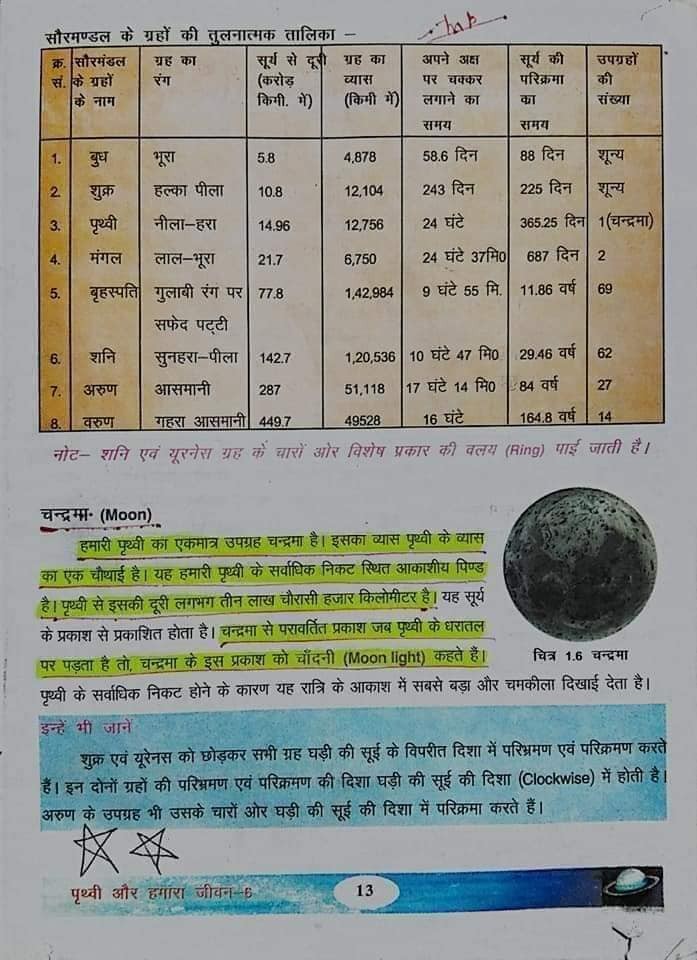 सौरमण्डल के ग्रहों की तुलनात्मक तालिका –
Imp
क्र. सं. सौरमंडल के ग्रहों के नाम ग्रह का रंग सूर्य से दूरी (करोड़ किमी. में) ग्रह का व्यास (किमी में) अपने अक्ष पर चक्कर लगाने का समय सूर्य की परिक्रमा का समय उपग्रहों की संख्या
1. बुध भूरा 5.8 4,878 58.6 दिन 88 दिन शून्य
2. शुक्र हल्का पीला 10.8 12,104 243 दिन 225 दिन शून्य
3. पृथ्वी नीला–हरा 14.96 12,756 24 घंटे 365.25 दिन 1(चन्द्रमा)
4. मंगल लाल–भूरा 21.7 6,750 24 घंटे 37मि0 687 दिन 2
5. बृहस्पति गुलाबी रंग पर सफेद पट्टी 77.8 1,42,984 9 घंटे 55 मि. 11.86 वर्ष 69
6. शनि सुनहरा–पीला 142.7 1,20,536 10 घंटे 47 मि0 29.46 वर्ष 62
7. अरुण आसमानी 287 51,118 17 घंटे 14 मि0 84 वर्ष 27
8. वरुण गहरा आसमानी 449.7 49528 16 घंटे 164.8 वर्ष 14
नोट– शनि एवं यूरनेस ग्रह के चारों ओर विशेष प्रकार की वलय (Ring) पाई जाती है।
चन्द्रमा- (Moon)
हमारी पृथ्वी का एकमात्र उपग्रह चन्द्रमा है। इसका व्यास पृथ्वी के व्यास
का एक चौथाई है। यह हमारी पृथ्वी के सर्वाधिक निकट स्थित आकाशीय पिण्ड
है। पृथ्वी से इसकी दूरी लगभग तीन लाख चौरासी हजार किलोमीटर है। यह सूर्य
के प्रकाश से प्रकाशित होता है। चन्द्रमा से परावर्तित प्रकाश जब पृथ्वी के धरातल
पर पड़ता है तो, चन्द्रमा के इस प्रकाश को चाँदनी (Moon light) कहते हैं।
चित्र 1.6 चन्द्रमा
पृथ्वी के सर्वाधिक निकट होने के कारण यह रात्रि के आकाश में सबसे बड़ा और चमकीला दिखाई देता है।
इन्हें भी जानें
शुक्र एवं यूरेनस को छोड़कर सभी ग्रह घड़ी की सूई के विपरीत दिशा में परिभ्रमण एवं परिक्रमण करते
हैं। इन दोनों ग्रहों की परिभ्रमण एवं परिक्रमण की दिशा घड़ी की सूई की दिशा (Clockwise) में होती है।
अरुण के उपग्रह भी उसके चारों ओर घड़ी की सूई की दिशा में परिक्रमा करते हैं।
पृथ्वी और हमारा जीवन–6
13